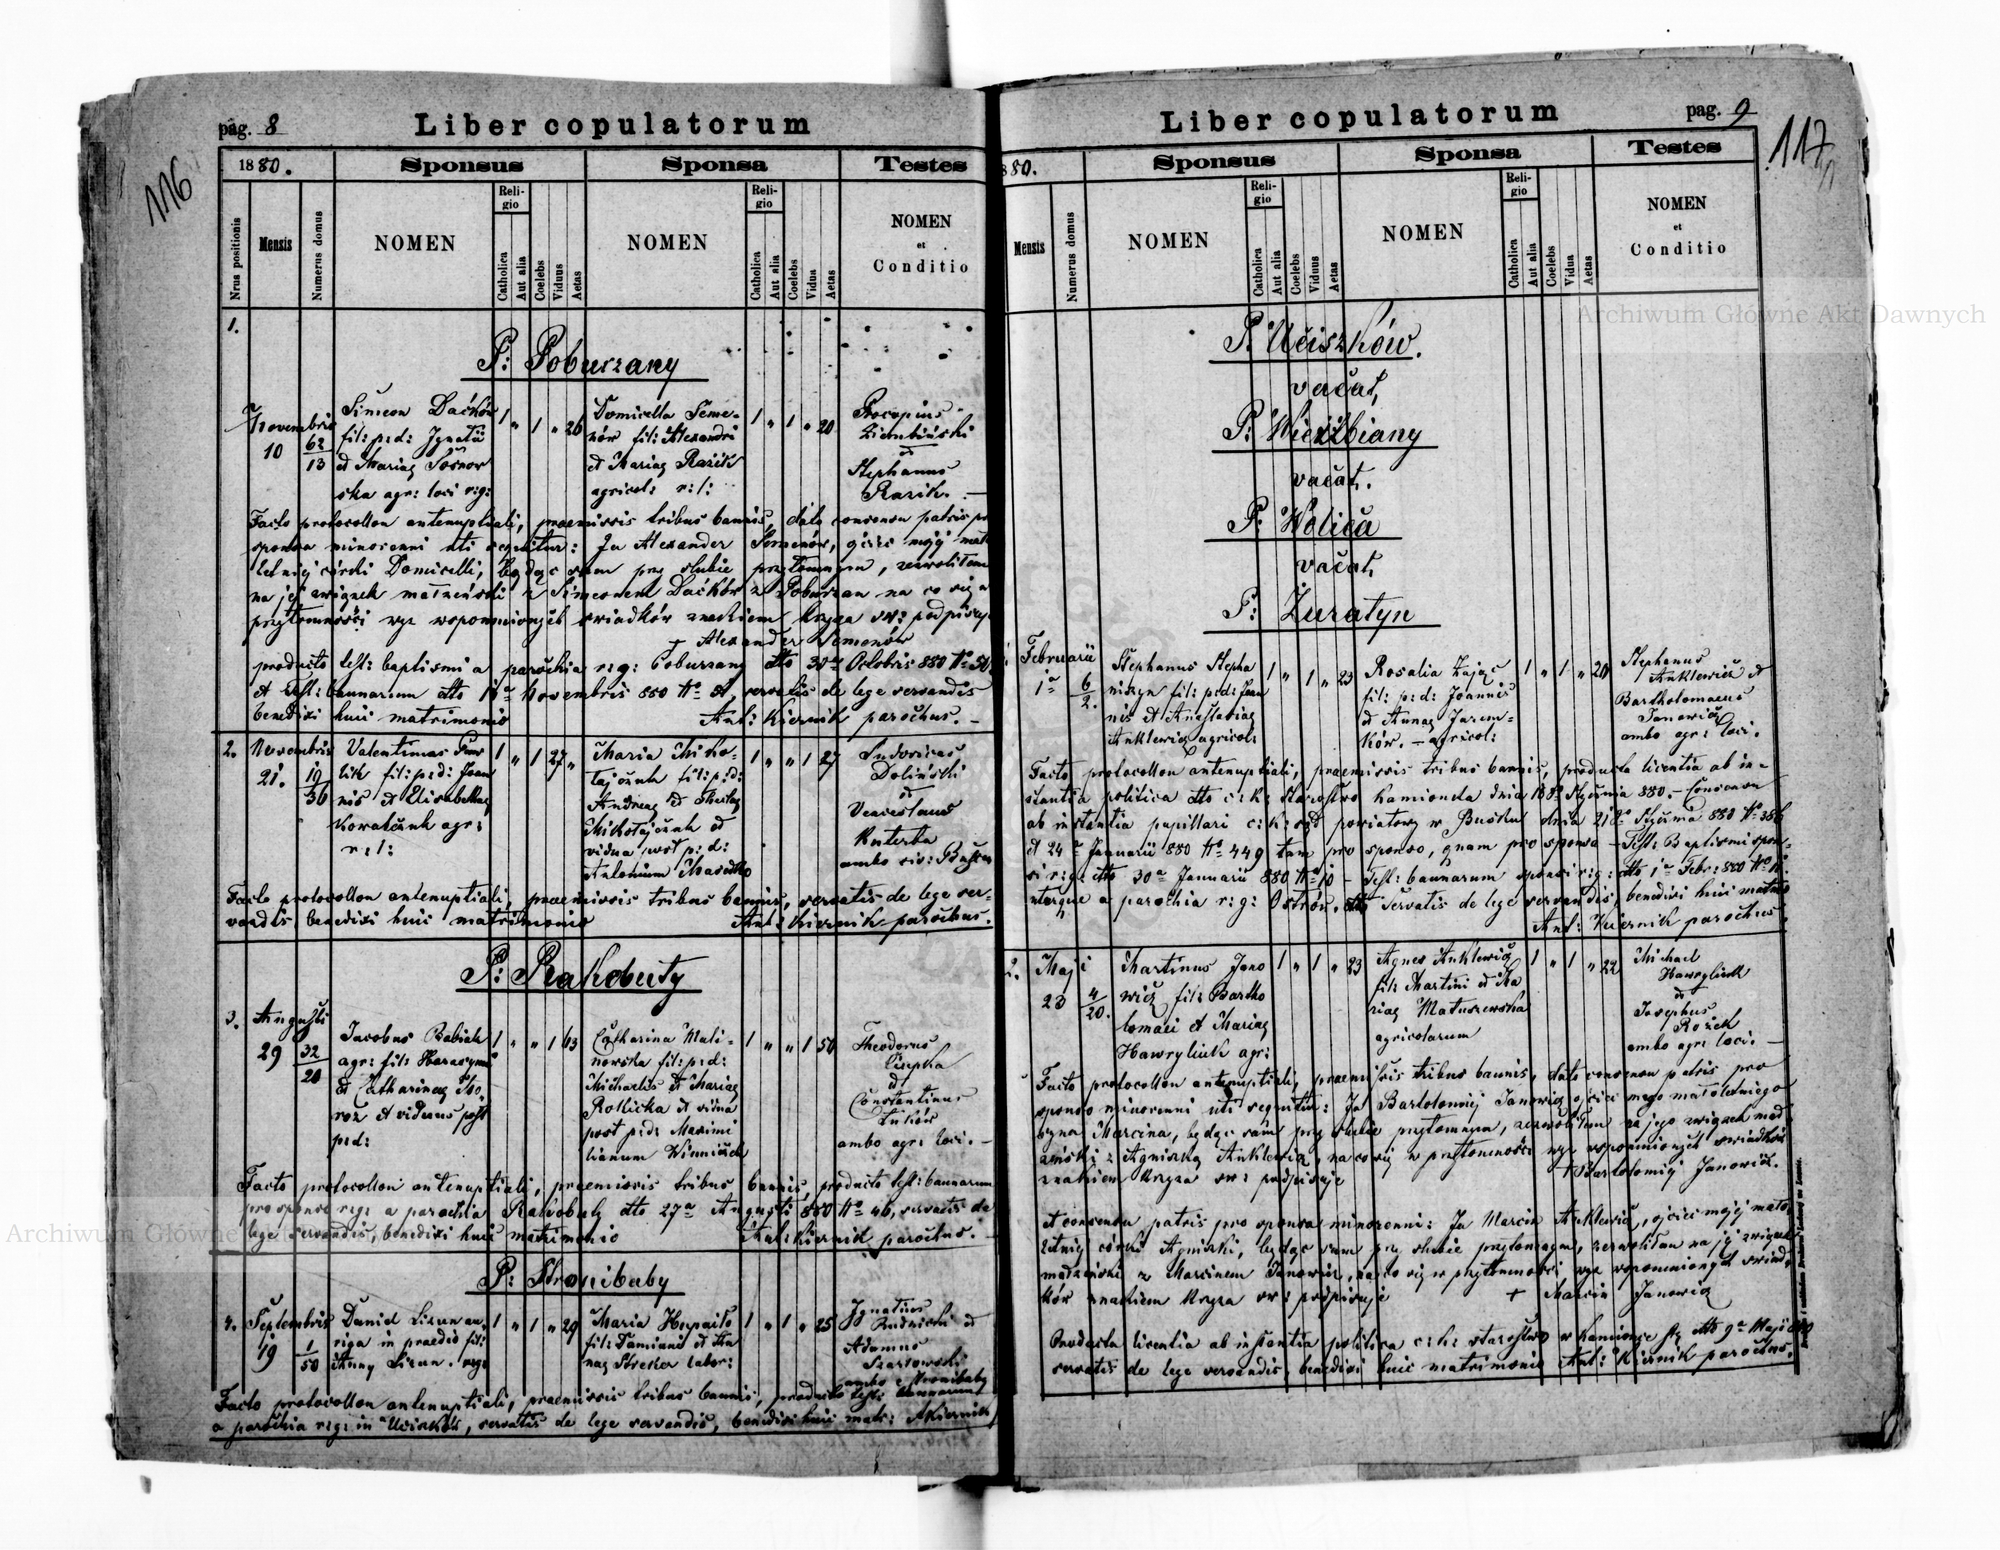 pag. 8
Liber copulatorum
116
1880.
Sponsus
Sponsa
Testes
Nrus positionis
Mensis
Numerus domus
NOMEN
Religio
Catholica
Aut alia
Coelebs
Viduus
Aetas
NOMEN
Religio
Catholica
Aut alia
Coelebs
Vidua
Aetas
NOMEN
et
Conditio
1.
P: Poburzany
Novembris
10
62
13
Simeon Daćków
fil: p: d: Ignatii
et Mariae Sośnow
ska agr: loci r: g:
1 " 1 " 26
Domicella Seme-
nów fil: Alexandri
et Mariae Rarik
agricol: r: l:
1 " 1 " 20
Procopius
et
Stephanus
Rarik. —
Facto protocollon antenuptiali, praemissis tribus bannis, dato consensu patris pro
sponsa minorenni uti sequitur: Ja Alexander Semenów, ojciec mojéj mało
letniéj córki Domicelli, będąc sam przy ślubie przytomnym, zezwoliłem
na jéj związek małżeński z Simeonem Daćków z Poburzan na co się w
przytomności wyż wspomnionych świadków znakiem krzyża św: podpisuję
+ Alexander Semenów
producto test: baptismi a parochia r: g: Poburzany dto 30a Octobris 880 No 50
et Test: bannarum dto Novembris 880 No servatis de lege servandis
benedixi huic matrimonio Ant: Kiernik parochus. —
2.
Novembris
21.
19
36
Valentinus Paw
lik fil: p: d: Joan
nis et Elisabethae
Kowalczuk agr:
r: l:
1 " 1 27 "
Maria Miko-
łajczuk fil: p: d:
Andreae et Theclae
Mikołajczuk et
vidua post p: d:
Antonium
1 " " 1 27
Ludovicus
Doliński
et
Venceslaus
Kuterba
ambo civ:
Facto protocollon antenuptiali, praemissis tribus bannis, servatis de lege ser-
vandis, benedixi huic matrimonio Ant: Kiernik parochus.
P: Rakobuty
3.
Augusti
29
32
20
Jacobus Babiak
agr: fil: Harasymi
et Catharinae
et viduus post
p: d:
1 " " 1 63
Catharina Mali-
nowska fil: p: d:
Michaelis et Mariae
Rollicka et vidua
post p: d: Maximi
lianum
1 " " 1 50
Theodorus
et
Constantinus
ambo agr: loci. —
Facto protocollon antenuptiali, praemissis tribus bannis, producto test: bannarum
pro sponso r: g: a parochia Rakobuty dto 27a Augusti 880 No 46, servatis de
lege servandis, benedixi huic matrimonio Ant: Kiernik parochus. —
P: Stronibaby
4.
Septembris
19
1
50
Daniel Lizun au-
riga in praedio fil:
Anny Lizun. r: g:
1 " 1 " 29
Maria
fil: Damiani et An
nae labor:
1 " 1 " 25
Ignatius
Rudnicki et
Adamus
ambo e Stronibaby
Facto protocollon antenuptiali, praemissis tribus bannis, producto test: bannarum
a parochia r: g: in servatis de lege servandis, benedixi huic matr: AKiernik
Liber copulatorum
pag. 9
117
880.
Sponsus
Sponsa
Testes
Mensis
Numerus domus
NOMEN
Religio
Catholica
Aut alia
Coelebs
Viduus
Aetas
NOMEN
Religio
Catholica
Aut alia
Coelebs
Vidua
Aetas
NOMEN
et
Conditio
P: Uciszków.
vacat,
P: Wierzbiany
vacat.
P: Wolica
vacat,
P: Żuratyn
Februarii
1a
6
2.
Stephanus Stepha
niszyn fil: p: d: Joan
nis et Anastasiae
Anklewicz agricol:
1 " 1 " 23
Rosalia Zając
fil: p: d: Joannis
et Annae Jarem-
ków. — agricol:
1 " 1 " 20
Stephanus
Anklewicz et
Bartholomaeus
Janowicz
ambo agr: loci.
Facto protocollon antenuptiali, praemissis tribus bannis, producta licentia ab in-
stantia politica dto c: k: Starostwo Kamionka dnia 18go Stycznia 880. — Consensu
ab instantia pupillari c: k: sąd powiatowy w Busku dnia 21go Stycznia 880 No 386
et 24a Januarii 880 No 449 tam pro sponso, quam pro sponsa — Test: Baptismi spon-
si r: g: dto 30a Januarii 880 No 10 — Test: bannarum sponsi r: g: dto 1a Febr: 880 No
utrque a parochia r: g: Ostrów. servatis de lege servandis, benedixi huic matrio
Ant: Kiernik parochus.
2.
Maji
23
4
20.
Martinus Jano
wicz fil: Bartho
lomaei et Mariae
Hawryliuk agr:
1 " 1 " 23
Agnes Anklewicz
fil: Martini et Ma
riae Matuszewska
agricolarum
1 " 1 " 22
Michael
Hawryliuk
et
Josephus
Rożek
ambo agr: loci. —
Facto protocollon antenuptiali, praemissis tribus bannis, dato consensu patris pro
sponso minorenni uti sequitur: Ja Bartłomiéj Janowicz ojciec mego małoletniego
syna Marcina, będąc sam przy ślubie przytomnym, zezwoliłem na jego związek mał
żeński z Agniszką Anklewicz, na co się w przytomności wyż wspomnionych świadków
znakiem krzyża św: podpisuję + Bartłomiéj Janowicz.
et consensu patris pro sponsa minorenni: Ja Marcin Anklewicz, ojciec mojéj mało
letniéj córki Agniszki, będąc sam przy ślubie przytomnym, zezwoliłem na jéj związek
małżeński z Marcinem Janowicz, na co się w przytomności wyż wspomnionych świad-
ków znakiem krzyża św: podpisuję + Marcin Janowicz
Producta licentia ab instantia politica c: k: starostwo w Kamionce dto 9a Maji 880
servatis de lege servandis, benedixi huic matrimonio Ant: Kiernik parochus.
Archiwum Główne Akt Dawnych
Archiwum Główne Akt Dawnych